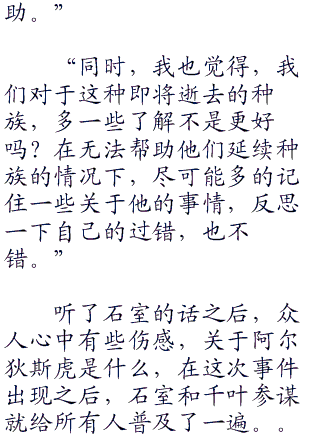 助。”
“同时，我也觉得，我
们对于这种即将逝去的种
族，多一些了解不是更好
吗？在无法帮助他们延续种
族的情况下，尽可能多的记
住一些关于他的事情，反思
一下自己的过错，也不
错。”
听了石室的话之后，众
人心中有些伤感，关于阿尔
狄斯虎是什么，在这次事件
出现之后，石室和千叶参谋
就给所有人普及了一遍。。